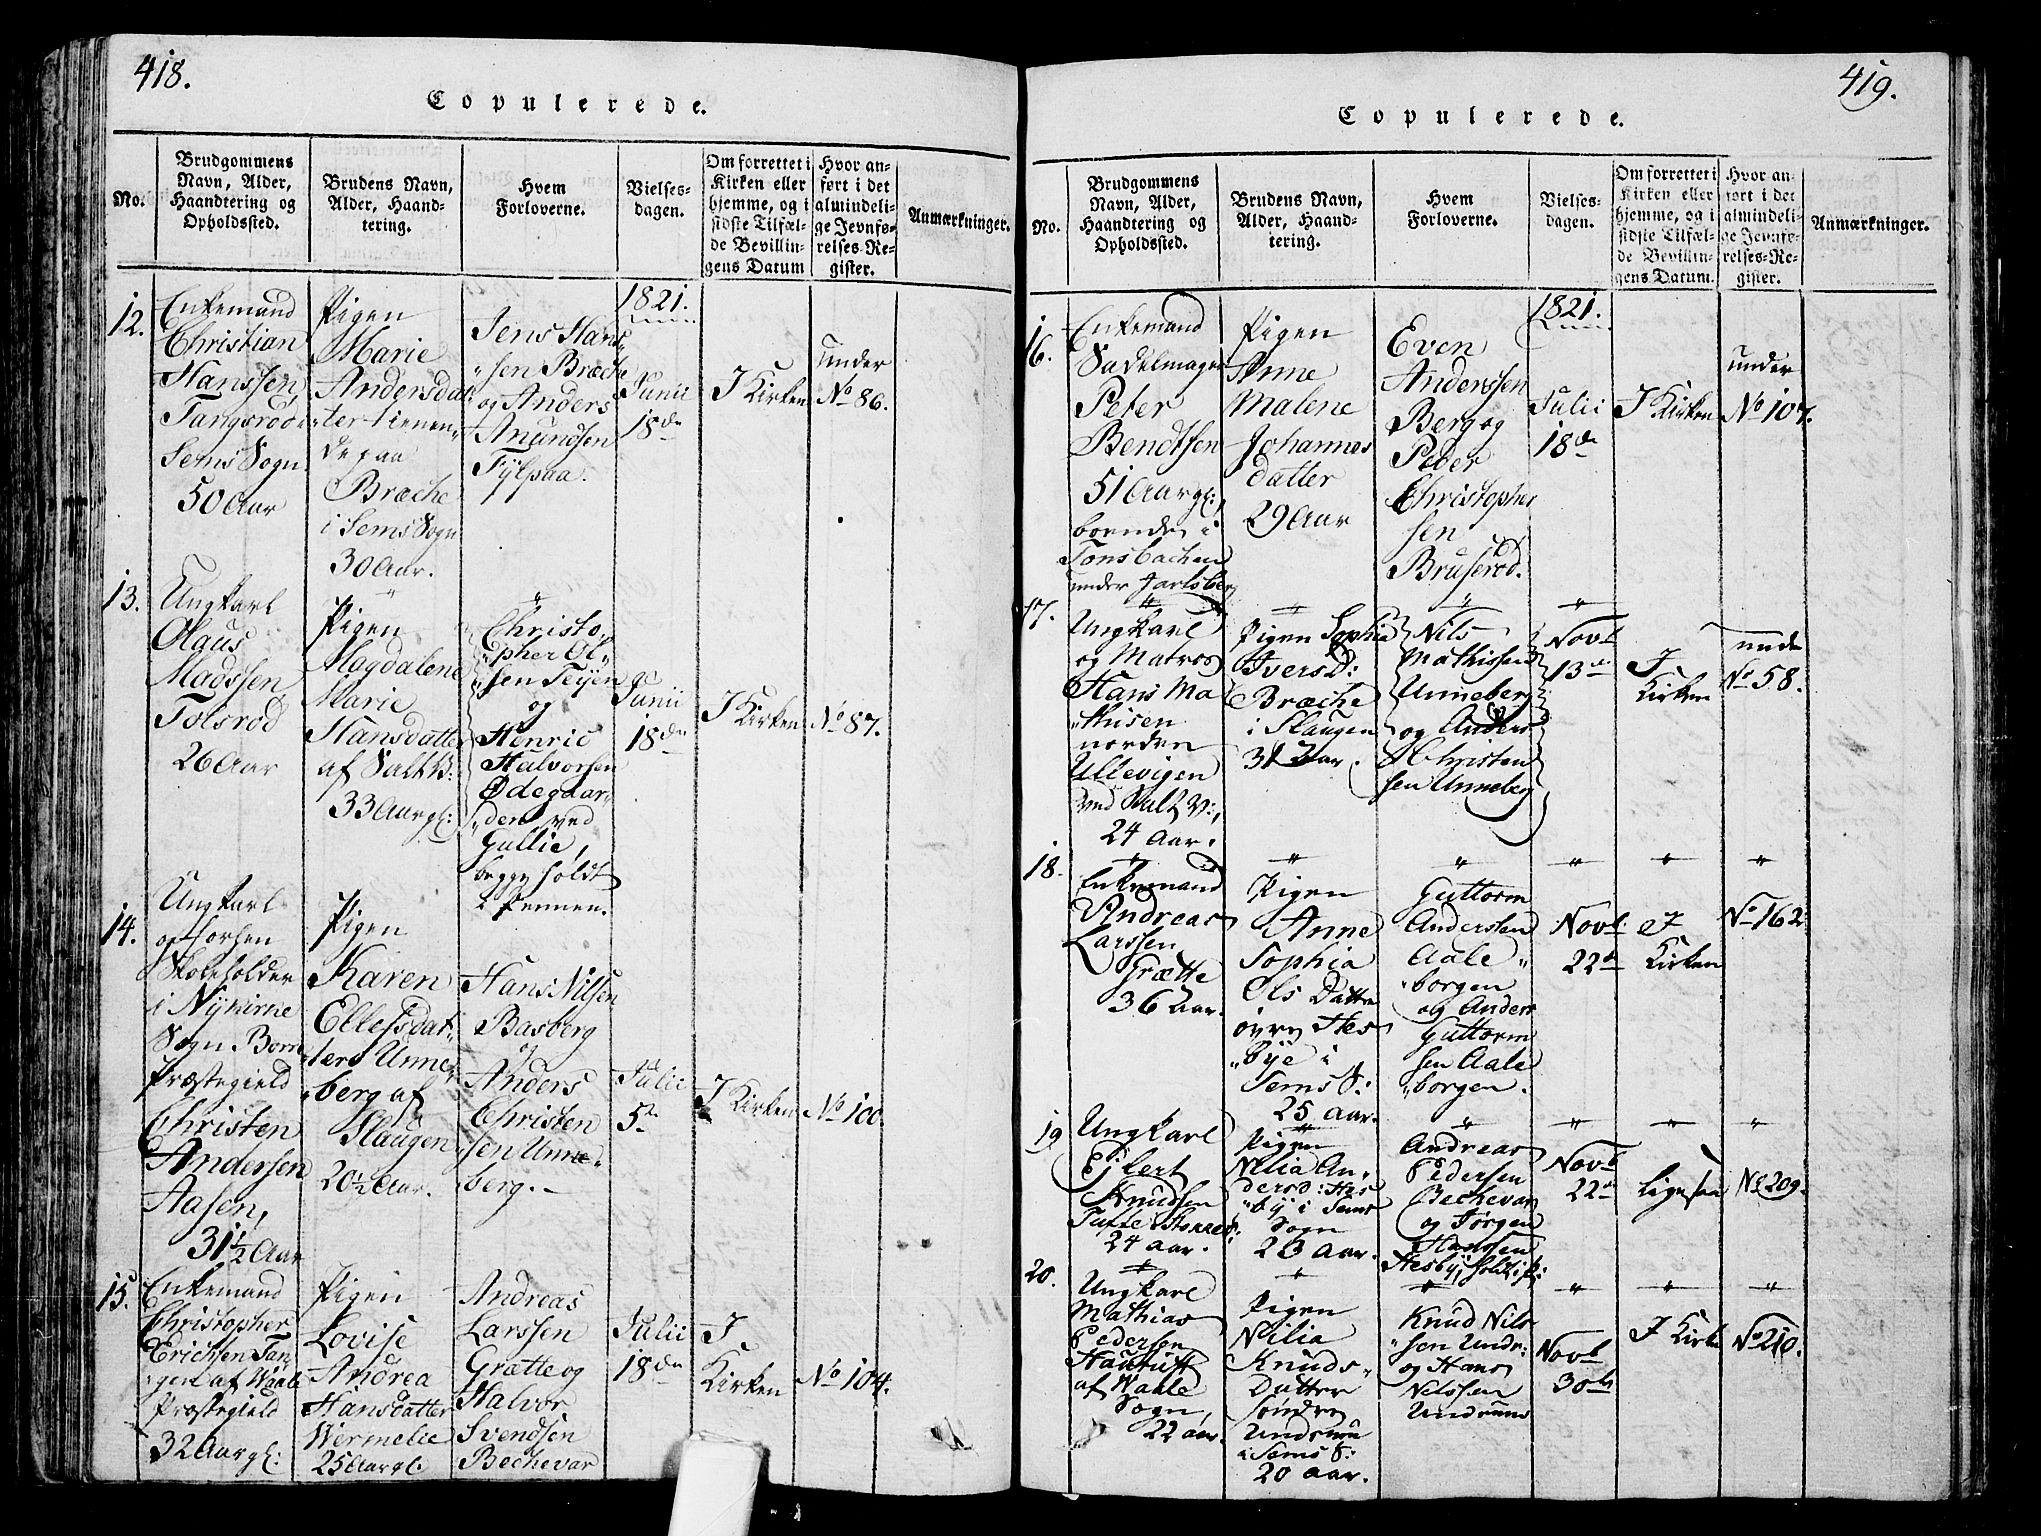 418.
Copulerede.
No.
Brudgommens
Navn, Alder,
Haandtering og
Opholdssted.
Brudens Navn,
Alder, Haand-
tering.
Hvem
Forloverne.
Vielses-
dagen.
Om forrettet i
Kirken eller
hjemme, og i
sidste Tilfæl-
de Bevillin-
gens Datum
Hvor an-
ført i det
almindeli-
ge Jevnfø-
relses-Re-
gister.
Anmærkninger.
12.
Enkemand
Christian
Hanssen,
Tangsrød
Sems Sogn
50 Aar
Pigen
Marie
Andersdat
ter tienen„
de paa
Bræche
i Sems Sogn
30 Aar.
Jens Hans
„sen Bræche
og Anders
Anundsen
Fylpaa.
1821.
Junii
18de
I Kirken
under
No 86.
13.
Ungkarl
Olaus
Madssen
Tolsrød
26 Aar
Pigen
Magdalene
Marie
Hansdatter
af Valløe:
33 Aar gl:
Christo„
„pher Ol„
„sen Teyen
og
Henric
Halvorsen
Ødegaar„
„den ved
Gullie,
begge holdt
i Pennen.
Junii
18de
I Kirken
No 87.
14.
Ungkarl
og forhen
Skoleholder
i Nykirke
Sogn Borre
Præstegield
Christen
Andersen
Aasen,
31½ Aar
Pigen
Karen
Ellefsdat„
ter Unne„
„berg af
Slaugen
20½ Aar.
Hans Nilsen
Basberg
og
Anders
Christen
„sen Unne„
berg. –
Julii
5te
I Kirken
No 100
15.
Enkemand
Christopher
Erichsen Tan„
„gen af Waale
Præstegield
32 Aar gl:
Pigen
Lovise
Andrea
Hansdatter
Wermelie
25 Aar gl:
Andreas
Larssen
Grætte og
Halvor
Svendsen
Bechevar
Julii
18de
I
Kirken
No 104.
419.
Copulerede.
No.
Brudgommens
Navn, Alder,
Haandtering og
Opholdssted.
Brudens Navn,
Alder, Haand-
tering.
Hvem
Forloverne.
Vielses-
dagen.
Om forrettet i
Kirken eller
hjemme, og i
sidste Tilfæl-
de Bevillin-
gens Datum.
Hvor an-
ført i det
almindeli-
ge Jevnfø-
relses-Re-
gister.
Anmærkninger.
16.
Enkemand
Sadelmager
Peter
Bendtsen
51 Aar gl:,
boende i
Tonsbachen
under Jarlsberg
Pigen
Anne
Malene
Johannes
datter
29 Aar
Even
Anderssen
Berg og
Peder
Christopher
sen
Bruserød.
1821.
Julii
18de
I Kirken
under
No 107.
17.
Ungkarl
og Matros
Hans Ma
„thisen
norden
Ullevigen
ved Valløe:,
24 Aar.
Pigen Sophia
Ivers D:
Bræche
i Slaugen
31 Aar.
Nils
Mathissen
Unneberg
og Anders
Christen
sen Unneberg
Novb
13de
I
Kirken
unde
No 58.
18.
Enkemand
Andreas
Larssen
Grætte
36 Aar.
Pigen
Anne
Sophia
Ols Datter
øvre Hes
„bye i
Sems S:
25 Aar.
Guttorm
Andersen
Aale„
„borgen
og Anders
Guttorm
sen Aale
„borgen.
Novb:
22de
I
Kirken
No 162.
19
Ungkarl
Ejlert
Knudsen
24 Aar.
Pigen
Nilia An„
dersd: Hes
„by i Sems
Sogn
23 Aar.
Andreas
Pedersen
Bechevar
og Jørgen
Hanssen
Hesby holdt i P:
Novb
22de
Ligesaa
No 209.
20.
Ungkarl
Mathias
Pedersen
af Waale
Sogn,
22 Aar.
Pigen
Nilia
Knuds„
Datter
søndre
Undrum
i Sems S:
20 Aar.
Knud Nils
„sen Undr:
og Hans
Nilssen
Undrum
Novb
30te
I Kirke
No 210.